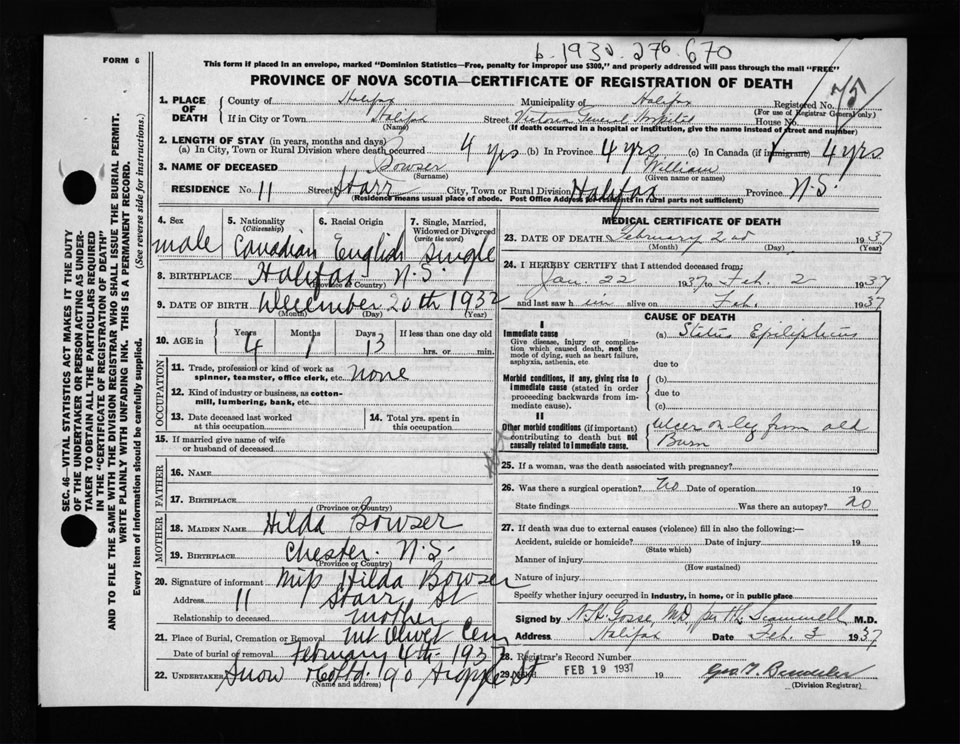 6-1932-276-670
FORM 6
This form if placed in an envelope, marked "Dominion Statistics—Free, penalty for improper use $300," and properly addressed will pass through the mail "FREE"
PROVINCE OF NOVA SCOTIA—CERTIFICATE OF REGISTRATION OF DEATH
SEC. 46—VITAL STATISTICS ACT MAKES IT THE DUTY
OF THE UNDERTAKER OR PERSON ACTING AS UNDER-
TAKER TO OBTAIN ALL THE PARTICULARS REQUIRED
IN THE "CERTIFICATE OF REGISTRATION OF DEATH"
AND TO FILE THE SAME WITH THE DIVISION REGISTRAR WHO SHALL ISSUE THE BURIAL PERMIT.
WRITE PLAINLY WITH UNFADING INK. THIS IS A PERMANENT RECORD.
Every item of information should be carefully supplied. (See reverse side for instructions.)
1. PLACE OF DEATH
County of Halifax Municipality of Halifax Registered No. 75
(For use of Registrar General only)
If in City or Town Halifax Street Victoria General Hospital House No.
(Name) (If death occurred in a hospital or institution, give the name instead of street and number)
2. LENGTH OF STAY (in years, months and days)
(a) In City, Town or Rural Division where death occurred 4 yrs (b) In Province 4 yrs (c) In Canada (if immigrant) 4 yrs
3. NAME OF DECEASED Bowser William
(Surname) (Given name or names)
RESIDENCE No. 11 Street Starr City, Town or Rural Division Halifax Province N.S.
(Residence means usual place of abode. Post Office Address for residents in rural parts not sufficient)
4. Sex male
5. Nationality (Citizenship) Canadian
6. Racial Origin English
7. Single, Married, Widowed or Divorced (write the word) Single
8. BIRTHPLACE Halifax N.S.
(Province or Country)
9. DATE OF BIRTH December 20th 1932
(Month) (Day) (Year)
10. AGE in Years 4 Months 1 Days 13 If less than one day old
hrs. or min.
OCCUPATION
11. Trade, profession or kind of work as spinner, teamster, office clerk, etc. none
12. Kind of industry or business, as cotton-mill, lumbering, bank, etc.
13. Date deceased last worked at this occupation
14. Total yrs. spent in this occupation
15. If married give name of wife or husband of deceased
FATHER
16. NAME
17. BIRTHPLACE
(Province or Country)
MOTHER
18. MAIDEN NAME Hilda Bowser
19. BIRTHPLACE Chester. N.S.
(Province or Country)
20. Signature of informant Miss Hilda Bowser
Address 11 Starr St
Relationship to deceased mother
21. Place of Burial, Cremation or Removal Mt Olivet Cem
Date of burial or removal February 4th 1937
22. UNDERTAKER Snow & Co Ltd. 90 Argyle St
(Name and address)
MEDICAL CERTIFICATE OF DEATH
23. DATE OF DEATH February 2nd 1937
(Month) (Day) (Year)
24. I HEREBY CERTIFY that I attended deceased from:
Jan. 22 1937 to Feb. 2 1937
and last saw him alive on Feb. 1937
CAUSE OF DEATH
I
Immediate cause
Give disease, injury or complication which caused death, not the mode of dying, such as heart failure, asphyxia, asthenia, etc
(a) Status Epilipticus
due to
Morbid conditions, if any, giving rise to immediate cause (stated in order proceeding backwards from immediate cause).
(b)
due to
(c)
II
Other morbid conditions (if important) contributing to death but not causally related to immediate cause.
Ulcer on leg from old
Burn
25. If a woman, was the death associated with pregnancy?
26. Was there a surgical operation? No Date of operation 19
State findings Was there an autopsy? no
27. If death was due to external causes (violence) fill in also the following:—
Accident, suicide or homicide? Date of injury 19
(State which)
Manner of injury
(How sustained)
Nature of injury
Specify whether injury occurred in industry, in home, or in public place
Signed by N.H. Gosse, MD. per H.L. Scammell M.D.
Address Halifax Date Feb. 3 1937
28. Registrar's Record Number
29. FEB 19 1937 19
(Division Registrar)